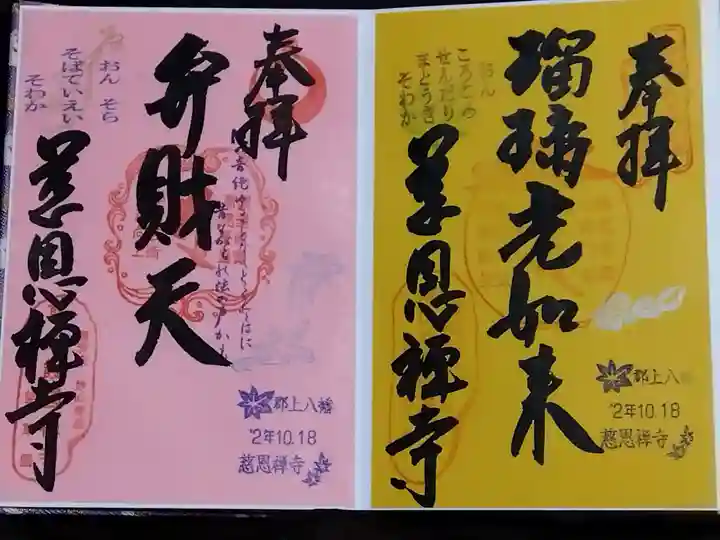 奉拝
瑠璃光如来
おん
ころころ
せんだり
まとうぎ
そわか
慈恩禅寺
郡上八幡
'2年10.18
慈恩禅寺
奉拝
弁財天
おん そら
そばていえい
そわか
慈恩禅寺
郡上八幡
'2年10.18
慈恩禅寺